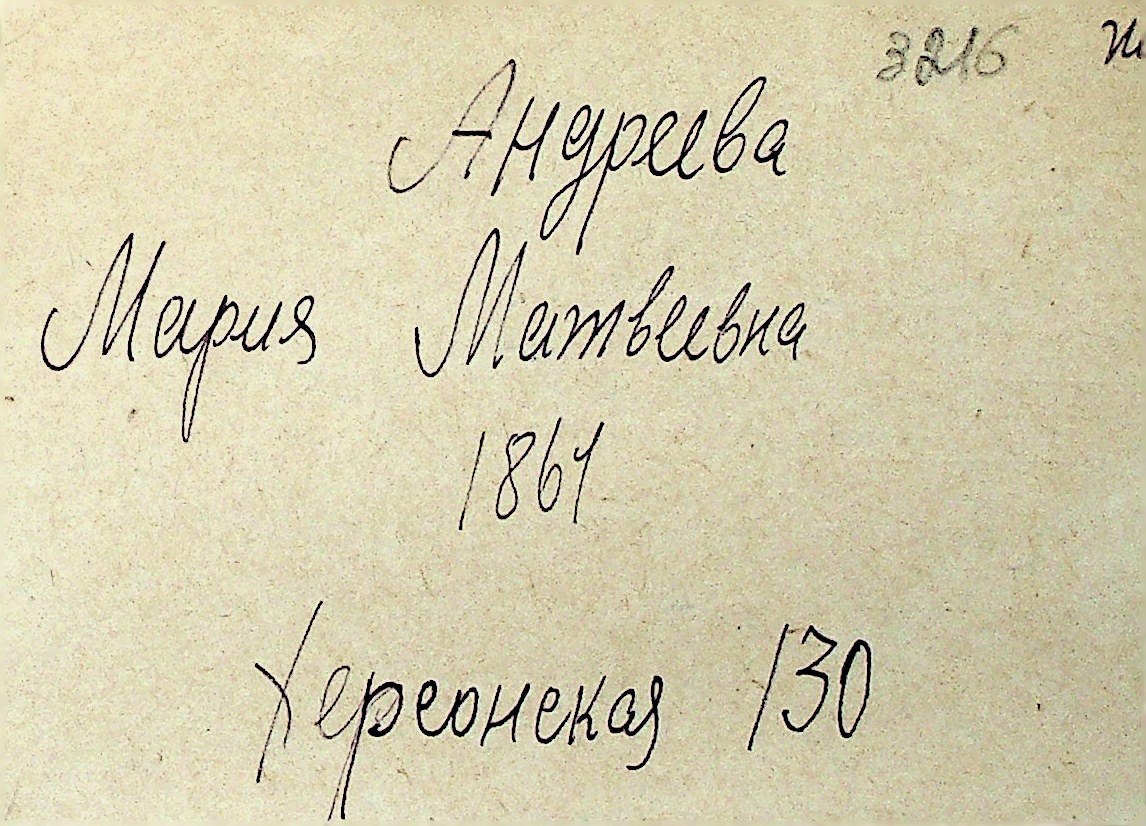 3216
Андреева
Мария Матвеевна
1861
Херсонская 130